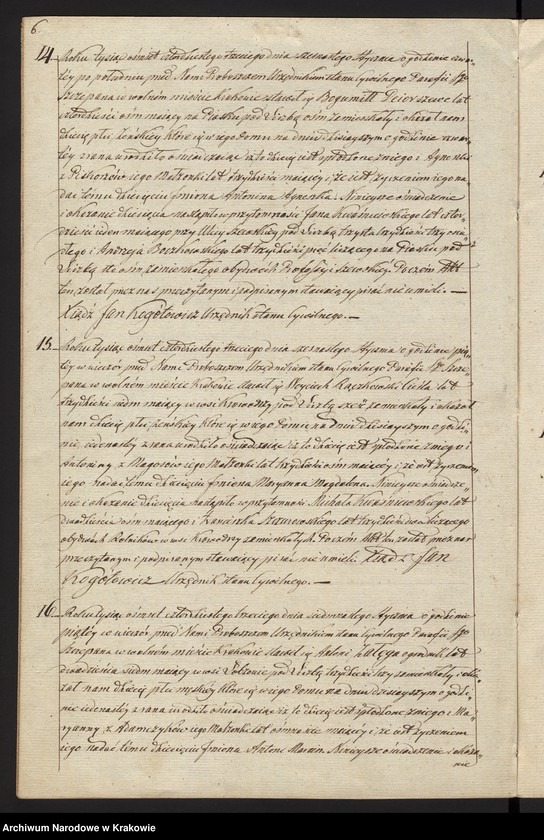 6.
14. Roku tysiąc ośmset czterdziestego trzeciego dnia szesnastego Stycznia o godzinie czwar=
tej po południu przed Nami Proboszczem Urzędnikiem stanu Cywilnego Parafii Sgo
Szczepana w wolném mieście Krakowie stawił się Bogumiłł lat
czterdzieści ośm mający na Piasku pod Liczbą ośm zamieszkały i okazał nam
dziecię płci żeńskiéj które się w jego Domu na dniu dzisiejszym o godzinie czwar=
téj z rana urodziło oświadczając iż to dziecię jest spłodzone z niego i Agnieszki
z jego Małżonki lat trzydzieści mającéj i że jest życzeniem jego na=
dać temu dziecięciu Imiona Antonina Agnieszka. Niniejsze oświadczenie
i okazanie dziecięcia nastąpiło w przytomności Jana Kwaśniewskiego lat czter=
dzieści siedem mającego przy Ulicy Szewskiéj pod Liczbą trzysta trzydzieści trzy osia=
dłego i Andrzeja Boczkowskiego lat trzydzieści pięć liczącego na Piasku pod
Liczbą sto ośm zamieszkałego obydwóch Profesyi szewskiéj. Poczém Akt
ten został przez nas przeczytanym i podpisanym stawający pisać nie umieli. —
Xiądz Jan Rogołowicz Urzędnik stanu Cywilnego. —
15. Roku tysiąc ośmset czterdziestego trzeciego dnia szesnastego Stycznia o godzinie pią=
téj w wieczór przed Nami Proboszczem Urzędnikiem stanu Cywilnego Parafii Sgo Szcze=
pana w wolném mieście Krakowie stawił się Wojciech Kaczkowski Cieśla lat
trzydzieści siedm mający w wsi Krowodrzy pod Liczbą sześć zamieszkały i okazał
nam dziecię płci żeńskiéj które się w jego Domu na dniu dzisiejszym o godzi=
nie jedenastéj z rana urodziło oświadczając iż to dziecię jest spłodzone z niego i
Antoniny z Magosów jego Małżonki lat trzydzieści ośm mającéj i że jest życzeniem
jego nadać temu dziecięciu Imiona Maryanna Magdalena. Niniejsze oświadcze=
nie i okazanie dziecięcia nastąpiło w przytomności Michała Kwaśniewskiego lat
dwadzieścia ośm mającego i Franciszka lat trzydzieści dwa liczącego
obydwóch Rolników w wsi Krowodrzy zamieszkałych. Poczém Akt ten został przez nas
przeczytanym i podpisanym stawający pisać nie umieli. Xiądz Jan
Rogołowicz Urzędnik stanu Cywilnego. —
16. Roku tysiąc ośmset czterdziestego trzeciego dnia siedmnastego Stycznia o godzinie
piątéj w wieczór przed Nami Proboszczem Urzędnikiem stanu Cywilnego Parafii Sgo
Szczepana w wolném mieście Krakowie stawił się Antoni lat
dwadzieścia siedm mający w wsi pod Liczbą trzydzieści trzy zamieszkały i oka=
zał nam dziecię płci męskiéj które się w jego Domu na dniu dzisiejszym o godzi=
nie jedenastéj z rana urodziło oświadczając iż to dziecię jest spłodzone z niego i Ma=
ryanny z Adamczyków jego Małżonki lat ośmnaście mającéj i że jest życzeniem
jego nadać temu dziecięciu Imiona Antoni Marcin. Niniejsze oświadczenie i okaza=
nie
Archiwum Narodowe w Krakowie